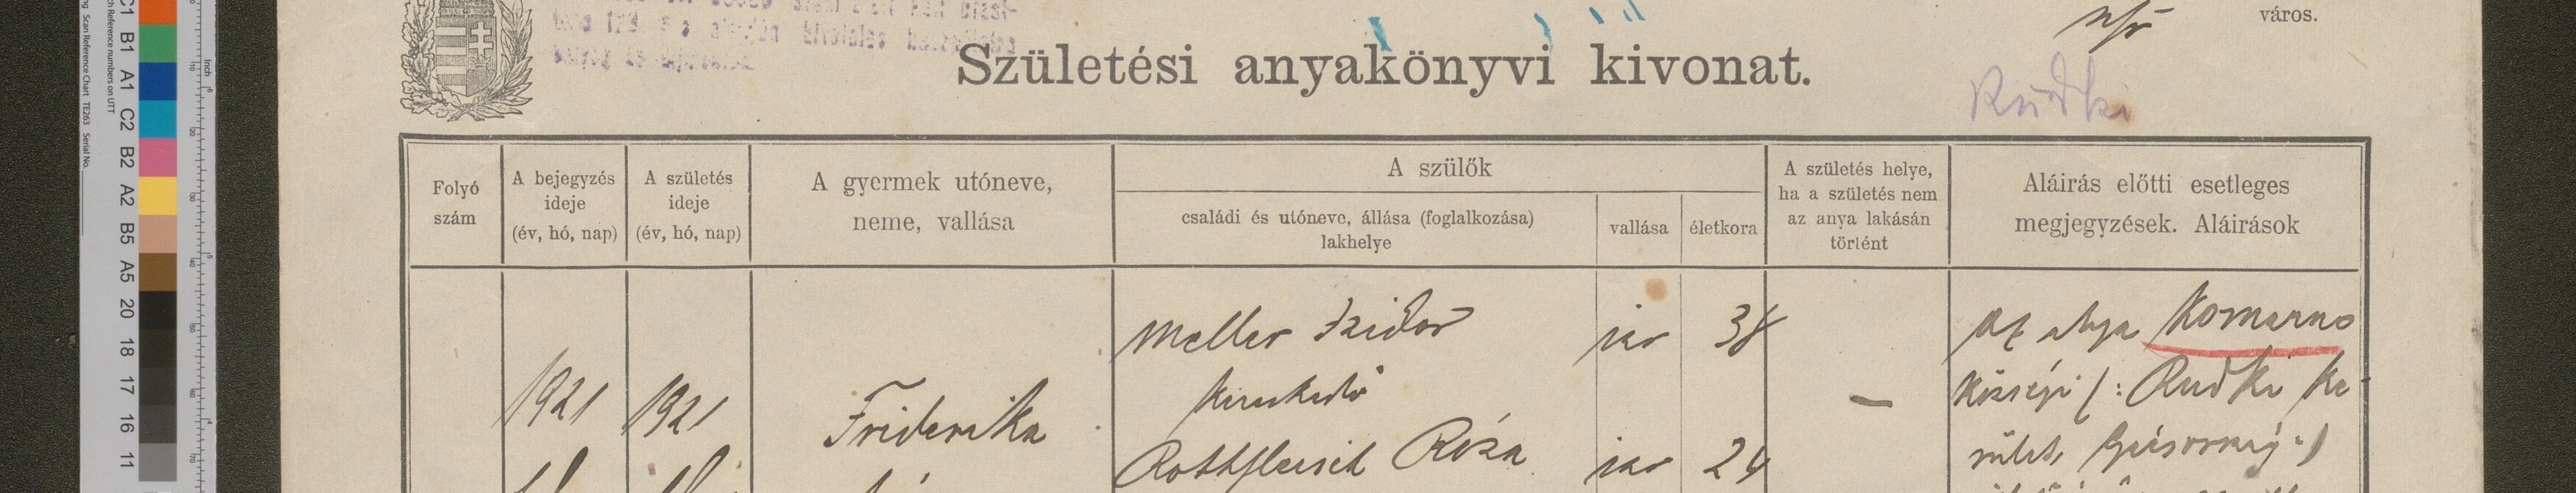 város.
Születési anyakönyvi kivonat.
Rudki
Folyó
szám
A bejegyzés
ideje
(év, hó, nap)
A születés
ideje
(év, hó, nap)
A gyermek utóneve,
neme, vallása
A szülők
családi és utóneve, állása (foglalkozása)
lakhelye
vallása
életkora
A születés helye,
ha a születés nem
az anya lakásán
történt
Aláirás előtti esetleges
megjegyzések. Aláirások
1921
1921
Friderika
Meller Izidor
izr
38
kereskedő
Róza
izr
24
—
Az atya Komarno
községi (: Rudki ke-
rület,
C1 B1 A1 C2 B2 A2 B5 A5 20 18 17 16 11
Scan Reference Chart TE263 Serial No.
inch